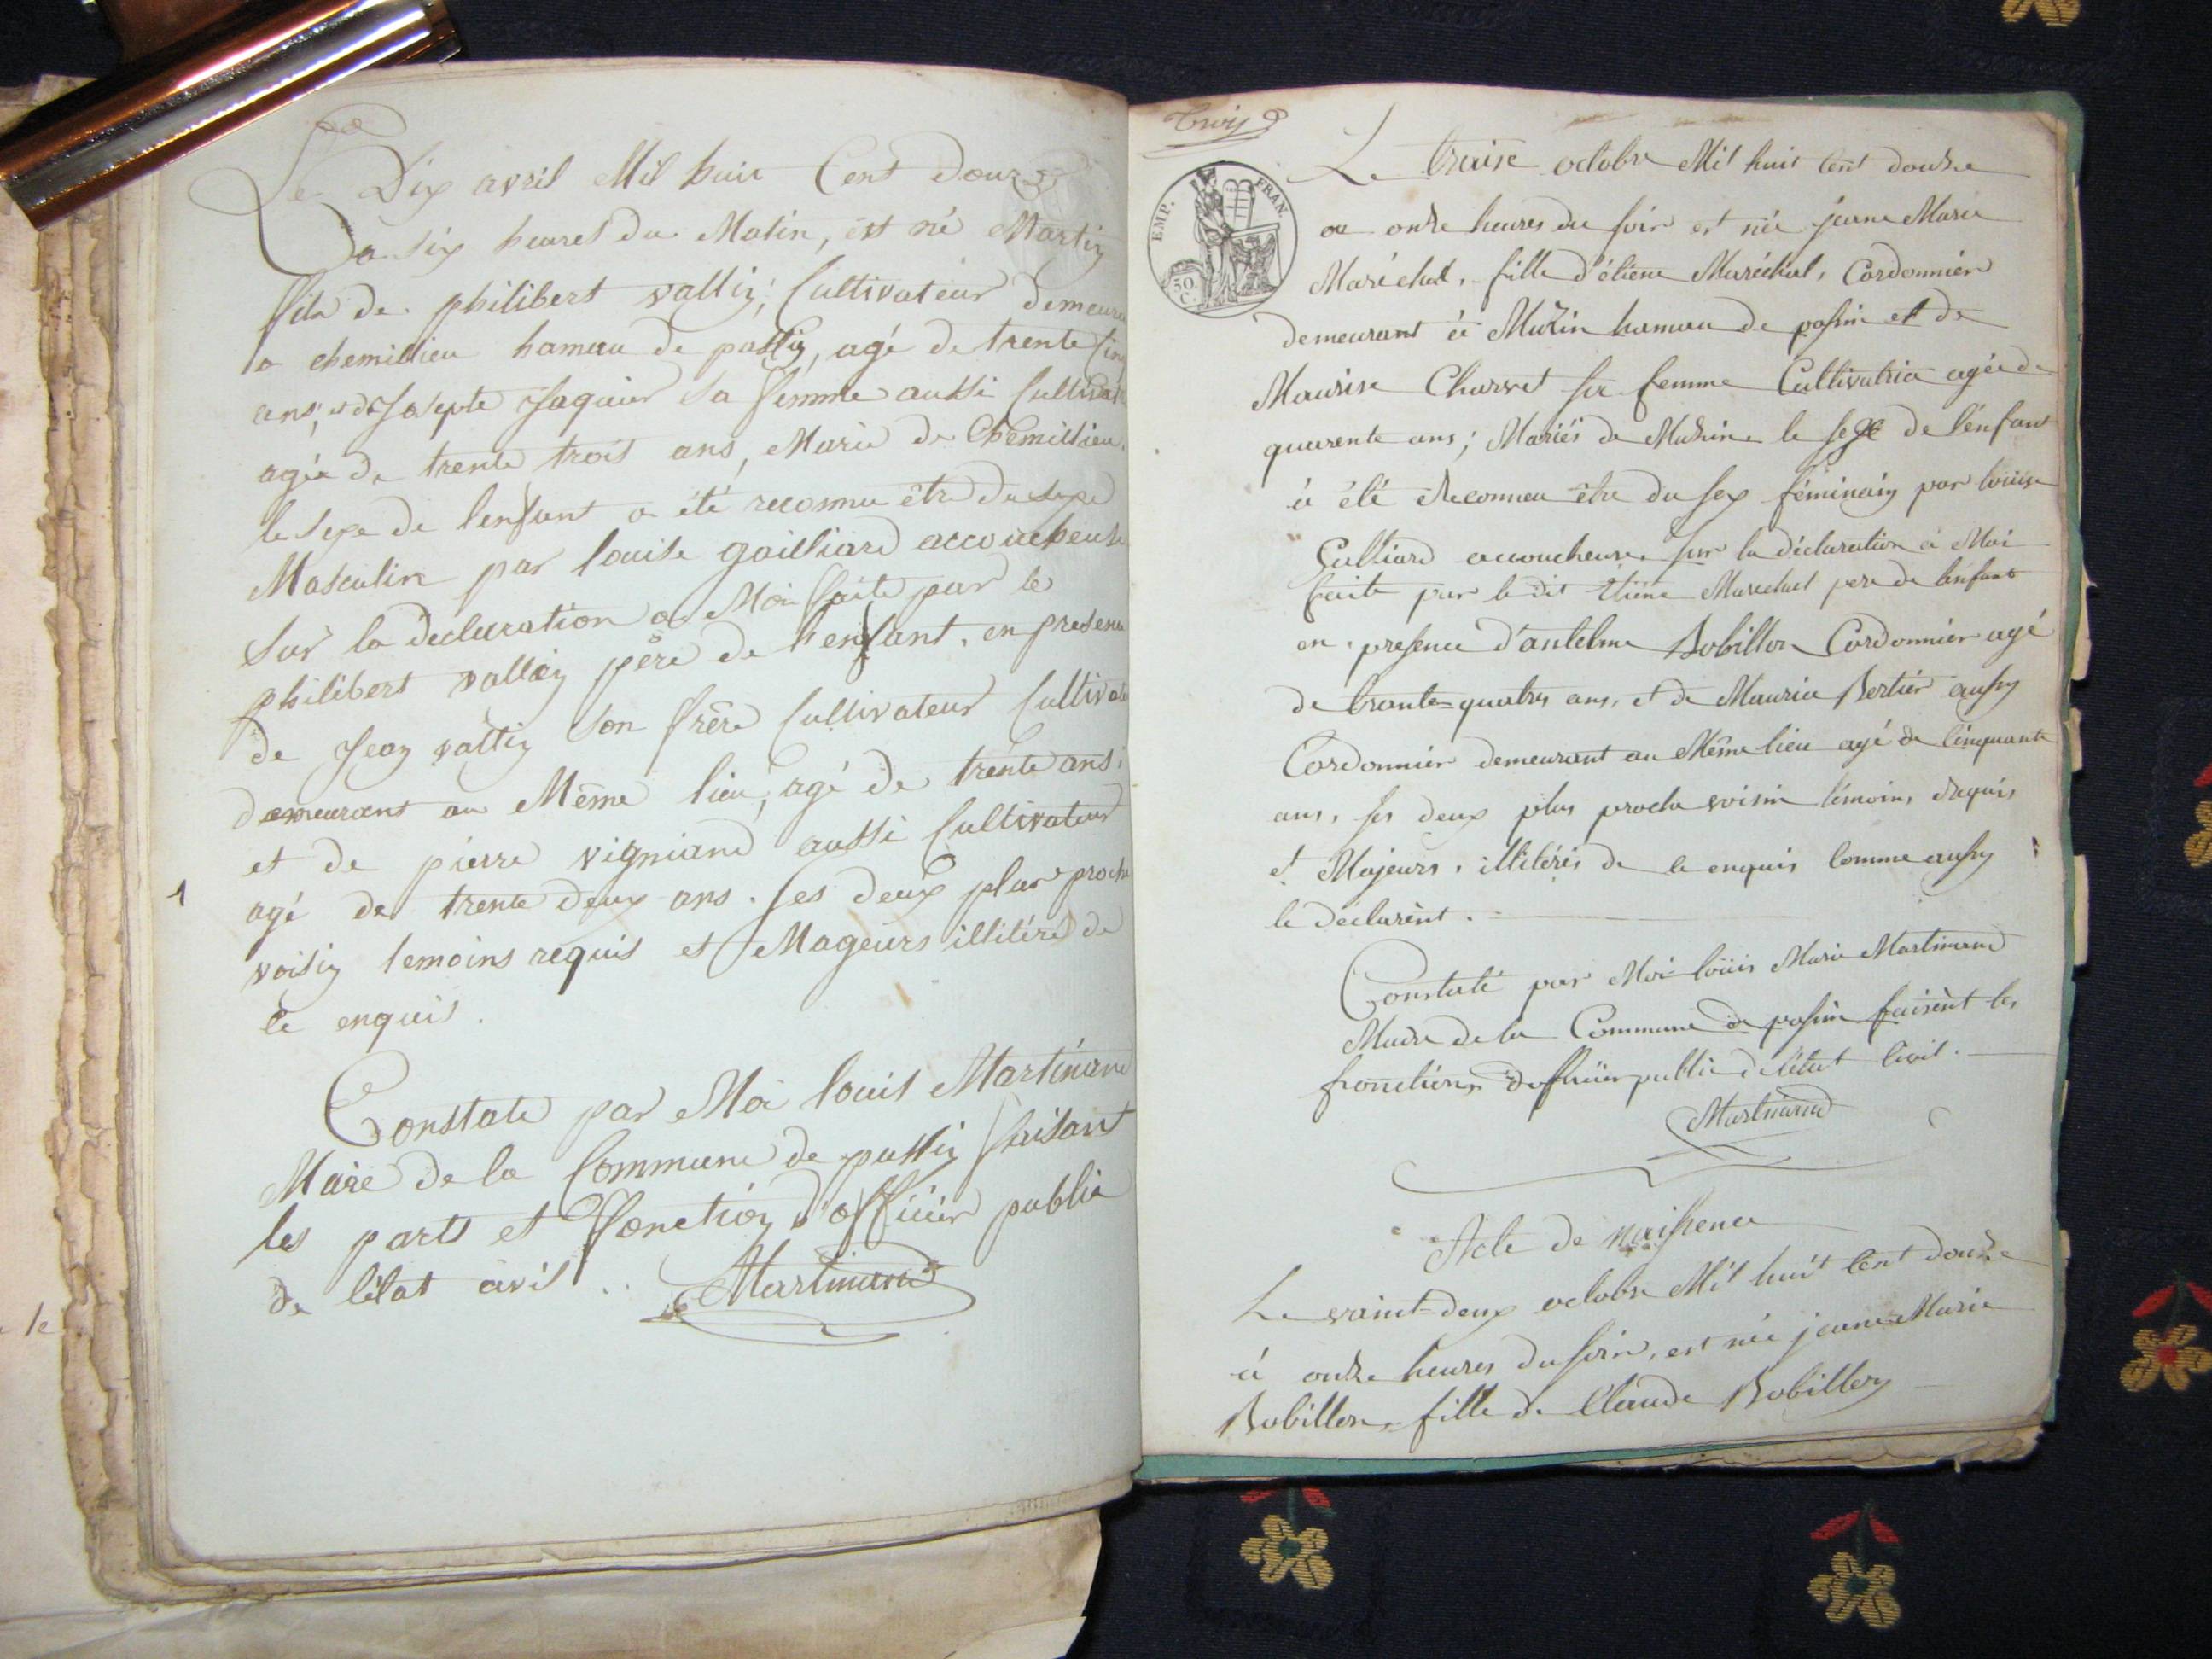 Le Dix avril Mil huit Cent Douze
a six heures du Matin, est né Martin
fils de philibert vallin, Cultivateur demeura
a chemillieu hameau de passin, agé de trente cin
ans, et de Josepte Jaquier sa femme aussi Cultivat
agée de trente trois ans, Marié de Chemillieu.
le sexe de lenfant a été reconnu être du sexe
Masculin par louise gailliard accoucheuse
sur la declaration a Moi faite par le
philibert vallin père de lenfant, en presence
de Jean vallin son frère Cultivateur Cultivat
demeurant au Même lieu, agé de trente ans;
et de pierre vigniand aussi Cultivateur
agé de trente deux ans. ses deux plus proche
voisin temoins requis et Mageurs illitéré de
ce enquis.
Constaté par Moi louis Martinand
Maire de la Commune de passin faisant
les parts et fonction d'officier public
de létat civil.. Martinand
1
le
Trois
EMP. FRAN.
50 C.
Le traise octobre Mil huit Cent douze
a onze heures du soir est née jeanne Marie
Maréchal, fille d'étiene Maréchal, Cordonnier
demeurant à Muzin hameau de passin et de
Maurise Charvet sa femme Cultivatrice agée de
quarente ans; Mariés de Muzin le sexe de l'énfant
à été Reconneu être du sex féminain par louise
Galliard accoucheuse sur la déclaration à Moi
faite par le dit étiene Marechal pere de lénfant
en presence d'antelme Bobillon Cordonnier agé
de trante=quatres ans, et de Maurice Bertier aussy
Cordonnier demeurant au Même lieu agé de Cinquante
ans, ses deux plus proche voisin témoins Requis
et Majeurs, illitérés de ce enquis Comme aussy
le déclarènt.
Constaté par Moi loüis Marie Martinand
Maire de la Commune de passin faisènt les
fronctions dofficier public de létat Civil.
Martinand
Acte de naissence
Le vaint=deux octobre Mil huit Cent douze
à onze heures du soir, est née jeanne Marie
Bobillon, fille de Claude Bobillon